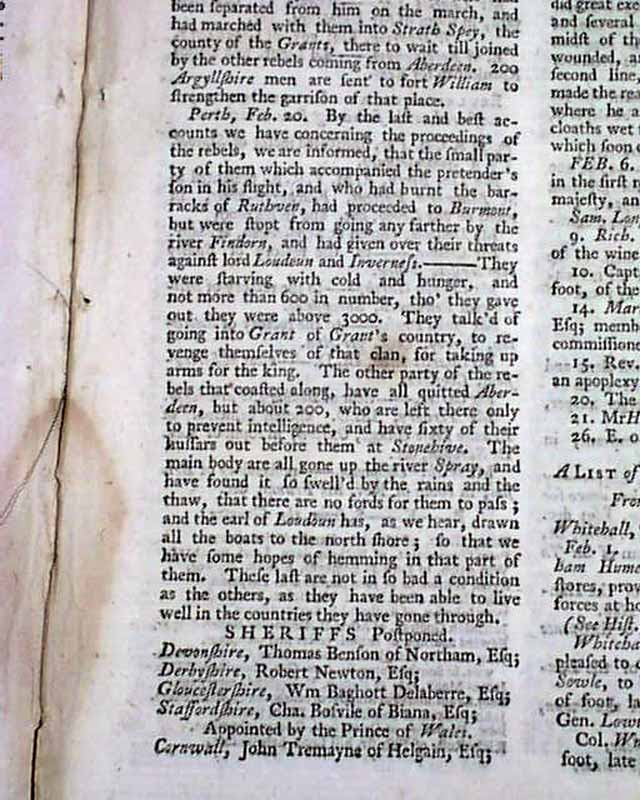 been ſeparated from him on the march, and
had marched with them into Strath Spey, the
county of the Grants, there to wait till joined
by the other rebels coming from Aberdeen. 200
Argyllſhire men are ſent to fort William to
ſtrengthen the garriſon of that place.
Perth, Feb. 20. By the laſt and beſt ac-
counts we have concerning the proceedings of
the rebels, we are informed, that the ſmall par-
ty of them which accompanied the pretender's
ſon in his flight, and who had burnt the bar-
racks of Ruthven, had proceeded to Burmont,
but were ſtopt from going any farther by the
river Findorn, and had given over their threats
againſt lord Loudoun and Inverneſs.——They
were ſtarving with cold and hunger, and
not more than 600 in number, tho' they gave
out they were above 3000. They talk'd of
going into Grant of Grant's country, to re-
venge themſelves of that clan, for taking up
arms for the king. The other party of the re-
bels that coaſted along, have all quitted Aber-
deen, but about 200, who are left there only
to prevent intelligence, and have ſixty of their
huſſars out before them at Stonehive. The
main body are all gone up the river Spray, and
have found it ſo ſwell'd by the rains and the
thaw, that there are no fords for them to paſs;
and the earl of Loudoun has, as we hear, drawn
all the boats to the north ſhore; ſo that we
have ſome hopes of hemming in that part of
them. Theſe laſt are not in ſo bad a condition
as the others, as they have been able to live
well in the countries they have gone through.
SHERIFFS Poſtponed.
Devonſhire, Thomas Benſon of Northam, Eſq;
Derbyſhire, Robert Newton, Eſq;
Glouceſterſhire, Wm Baghott Delaberre, Eſq;
Staffordſhire, Cha. Boſvile of Biana, Eſq;
Appointed by the Prince of Wales.
Cornwall, John Tremayne of Helgain, Eſq;
did great
and ſeveral
midſt of
wounded,
ſecond line,
made the
where he
cloaths wet
which ſoon
FEB. 6.
in the firſt
majeſty, an
Sam.
9. Rich.
of the wine
10. Capt
foot, of the
14.
Eſq; memb
commiſſione
15. Rev.
an apoplexy
20. The
21. Mr H
26. E. o
A LIST of
Whitehall,
Feb. 1.
ham Hume
ſtores, prov
forces at
(See Hiſt.
Whiteha
pleaſed to
Sowle, to
of foot,
Gen.
Col.
foot, late